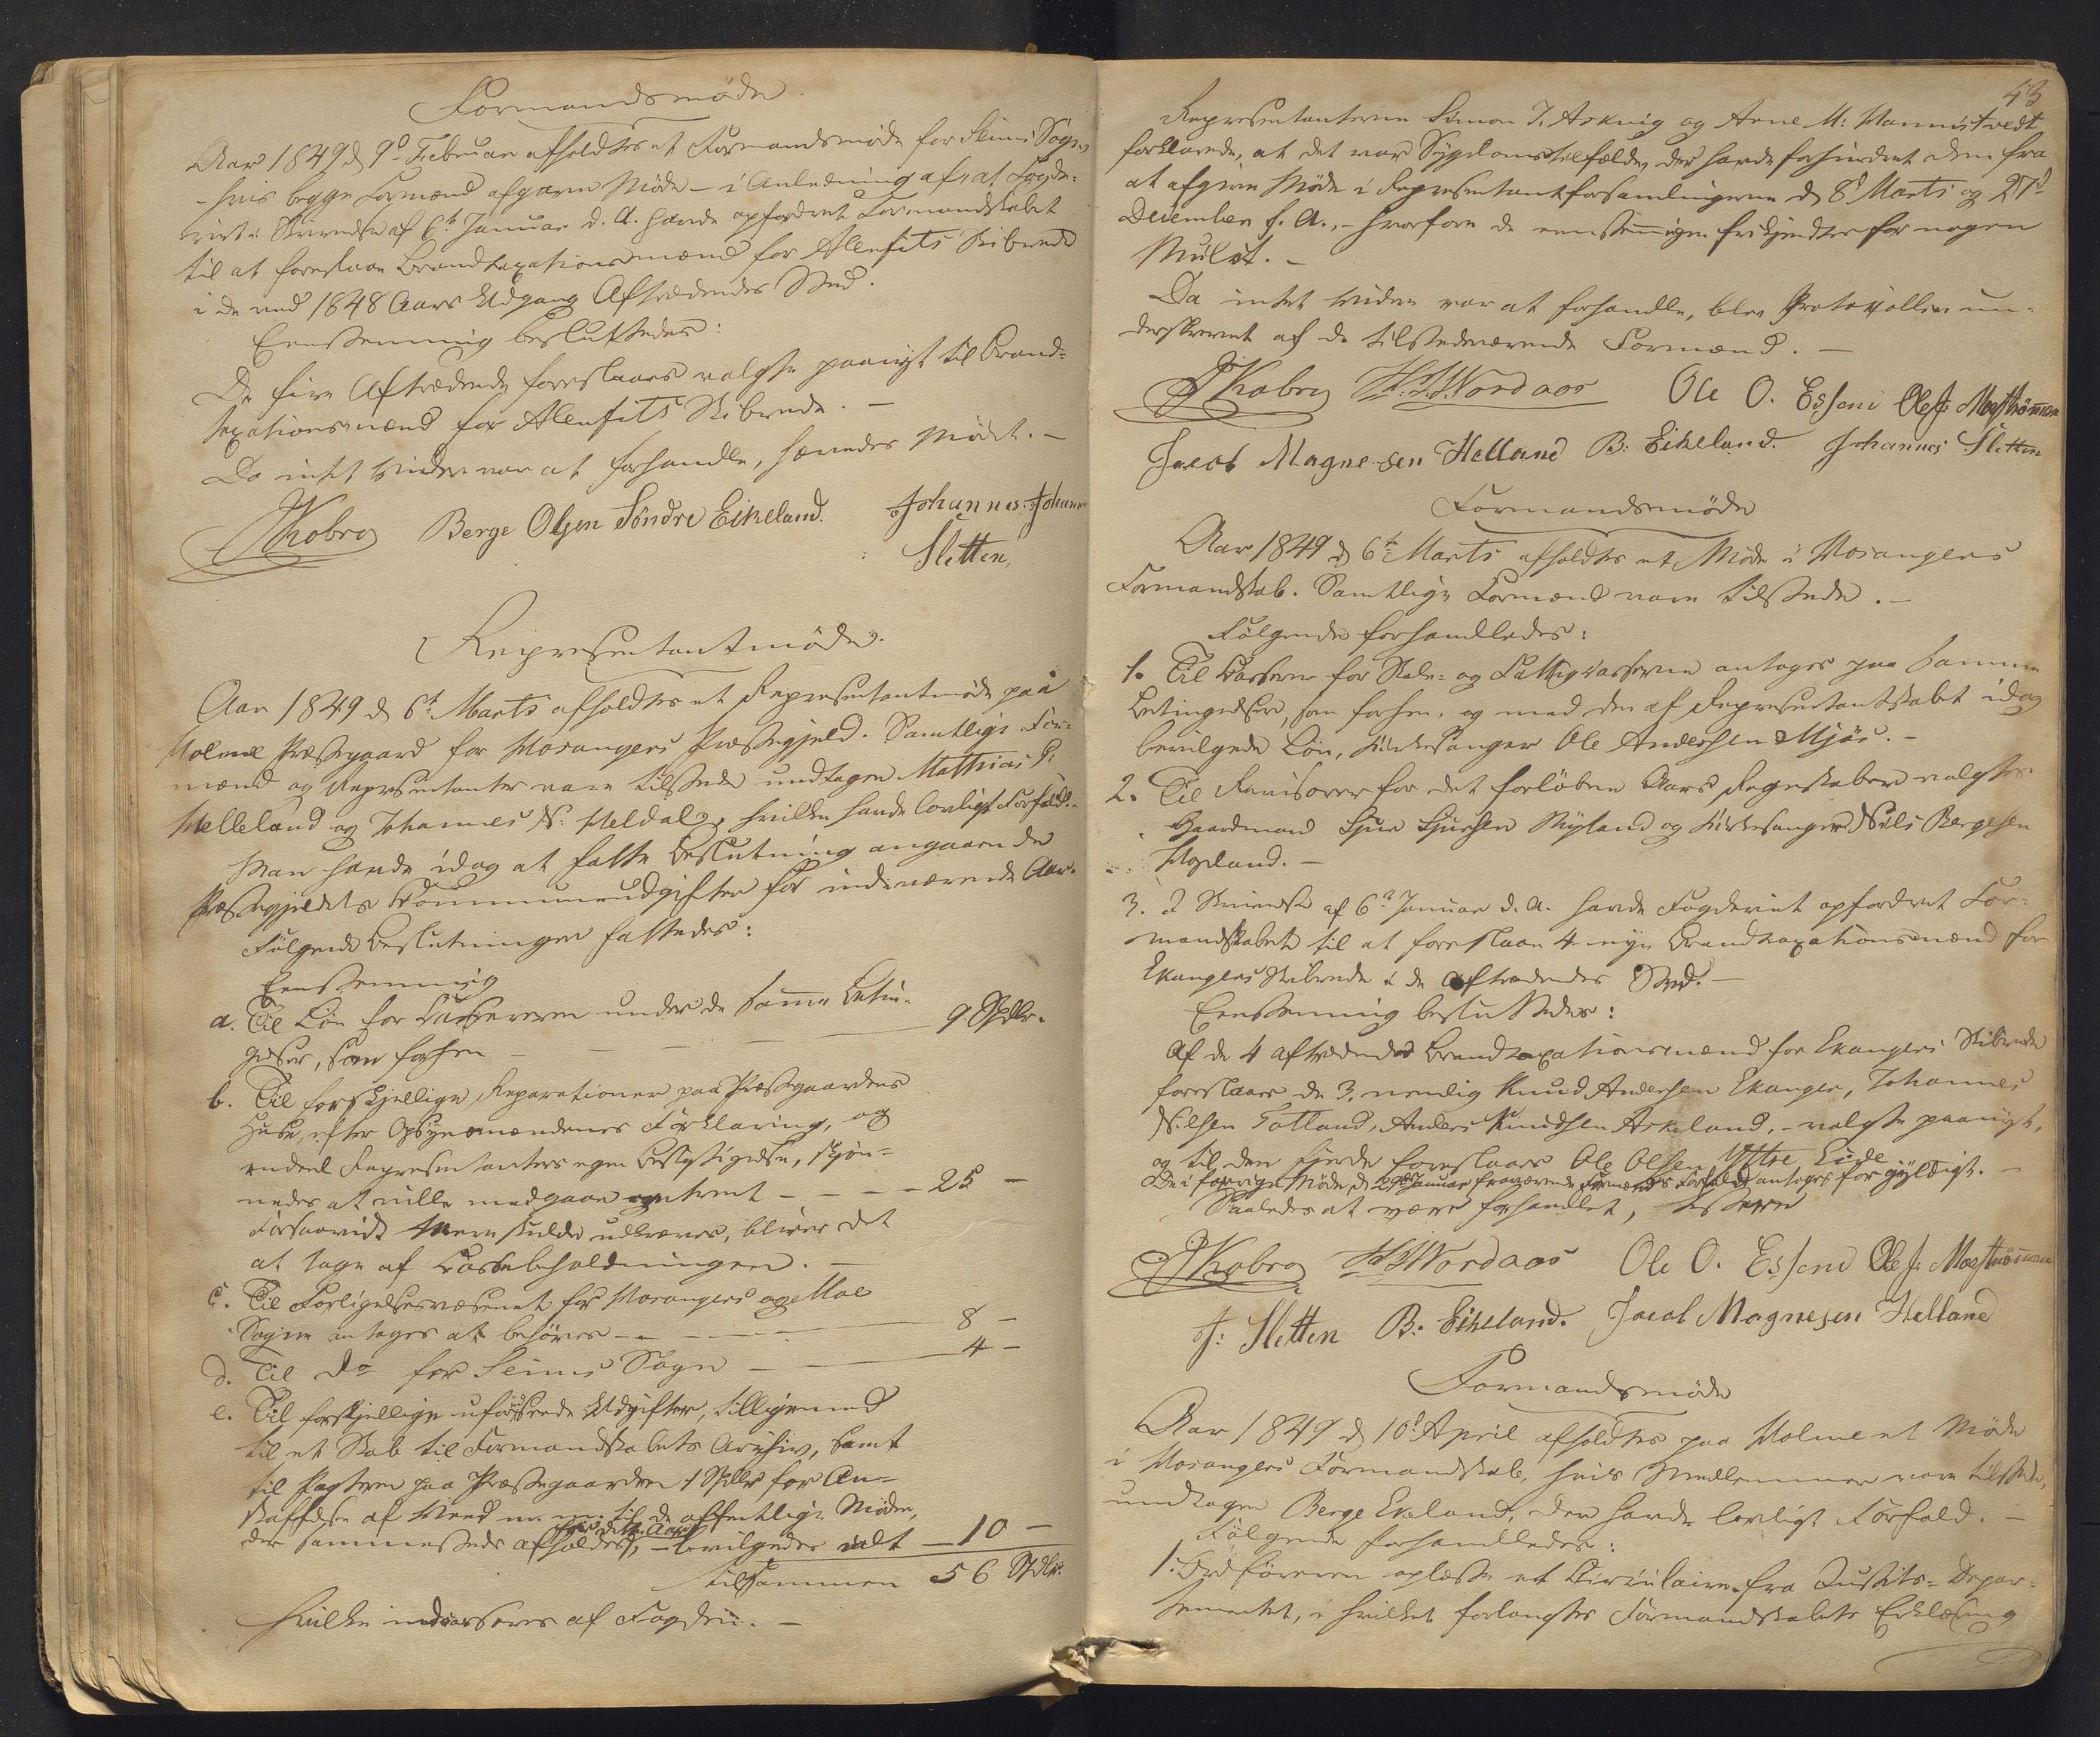 Formandsmöde
Aar 1849 d. 9d Februar afholdtes et Formandsmöde for Seims Sogn,
- hvis begge Formænd afgave Möde - i Anledning af, at Fogde-
riet i Skrivelse af 6te Januar d. A. havde opfordret Formandskabet
til at foreslaae Brandtaxationsmænd for Alenfits Skibrede
i de ved 1848 Aars Udgang Aftrædendes Sted.
Eenstemmig besluttedes:
De fire Aftrædende foreslaaes valgte paanyt til Brand-
taxationsmænd for Alenfits Skibrede. -
Da intet videre var at forhandle, hævedes Mödet. -
JKobro Berge Olsen Söndre Eikeland. Johannes Johann
Sletten,
Representantmöde.
Aar 1849 d. 6te Marts afholdtes et Representantmöde paa
Holme Præstegaard for Hosangers Præstegjeld. Samtlige For-
mænd og Representanter vare tilstede undtagen Mathias J:
Helleland og Johannes N: Heldal, hvilke havde lovligt Forfald. -
Man havde idag at fatte Beslutning angaaende
Præstegjeldets Kommuneudgifter for indeværende Aar.
Følgende Beslutninger fattedes:
Eenstemmig
a. Til Løn for Kassereren under de samme Betin-
gelser, som forhen - 9 Spdlr.
b. Til forskjellige Reparationer paa Præstegaardens
Huse, efter Opsynsmændenes Forklaring, og
endeel Representanters egen Besigtigelse, skjøn-
nedes at ville medgaae omtrent - - - - 25 -
Forsaavidt mere skulde udkræves, bliver det
at tage af Kassebeholdningen. -
c. Til Forligelsesvæsenet for Hosangers og Moe
Sogne antages at behöves - - 8 -
d. Til do for Seims Sogn - 4 -
e. Til forskjellige uforudseede Udgifter, tilligemed
til et Skab til Formandskabets Archiv, samt
til Pagteren paa Præstegaarden 1 Spdlr for An-
skaffelse af Veed m. m. til de offentlige Möder,
der sammesteds afholdes, - bevilgedes ialt - 10 -
tilsammen 56 Spdlr.
hvilke indcasseres af Fogden. -
43
Representanterne Simon J. Askvig og Arne M: Mannistvedt
forklarede, at det var Sygdomstilfælde, der havde forhindret dem fra
at afgive Möde i Representantforsamlingerne d. 8d Marts og 27d
December f. A., - hvorfore de eenstemmigen frikjendtes for nogen
Mulct. -
Da intet videre var at forhandle, blev Protocollen un-
derskrevet af de tilstedeværende Formænd. -
JKobro H.H.Nordaas Ole O. Essem Ole J: Moströmmen
Jacob Magnesen Helland B: Eikeland. Johannes Sletten
Formandsmöde
Aar 1849 d. 6te Marts afholdtes et Möde i Hosangers
Formandskab. Samtlige Formænd vare tilstede. -
Følgende forhandledes:
1. Til Kasserer for Skole- og Fattigkasserne antoges paa samme
Betingelser, som forhen, og med den af Representantskabet idag
bevilgede Løn, Kirkesanger Ole Andersen Mjös. -
2. Til Revisorer for det forløbne Aars Regnskaber valgtes
Gaardmand Sjur Sjursen Myland og Kirkesanger Nils Bergesen
Hopland. -
3. I Skrivelse af 6te Januar d. A. havde Fogderiet opfordret For-
mandskabet til at foreslaae 4 nye Brandtaxationsmænd for
Ekangers Skibrede i de aftrædendes Sted. -
Eenstemmig besluttedes:
Af de 4 aftrædende Brandtaxationsmænd for Ekangers Skibrede
foreslaaes de 3, nemlig Knud Andersen Ekanger, Johannes
Nilsen Totland, Anders Knudsen Askeland, - valgte paanyt,
og til den fjerde foreslaaes Ole Olsen Yttre Eide
De i forrige Möde, d. 29de Januar fraværende Formænds Forfald antoges for gyldigt. -
Saaledes at være forhandlet,
JKobro H.H.Nordaas Ole O. Essem Ole J: Moströmmen
J: Sletten B: Eikeland. Jacob Magnesen Helland
Formandsmöde
Aar 1849 d. 10d April afholdtes paa Holme et Möde
i Hosangers Formandskab, hvis Medlemmer vare tilstede,
undtagen Berge Ekeland, der havde lovligt Forfald. -
Følgende forhandledes:
1. Ordføreren oplæste et Circulaire fra Justits-Depar-
tementet, i hvilket forlangtes Formandskabets Erklæring